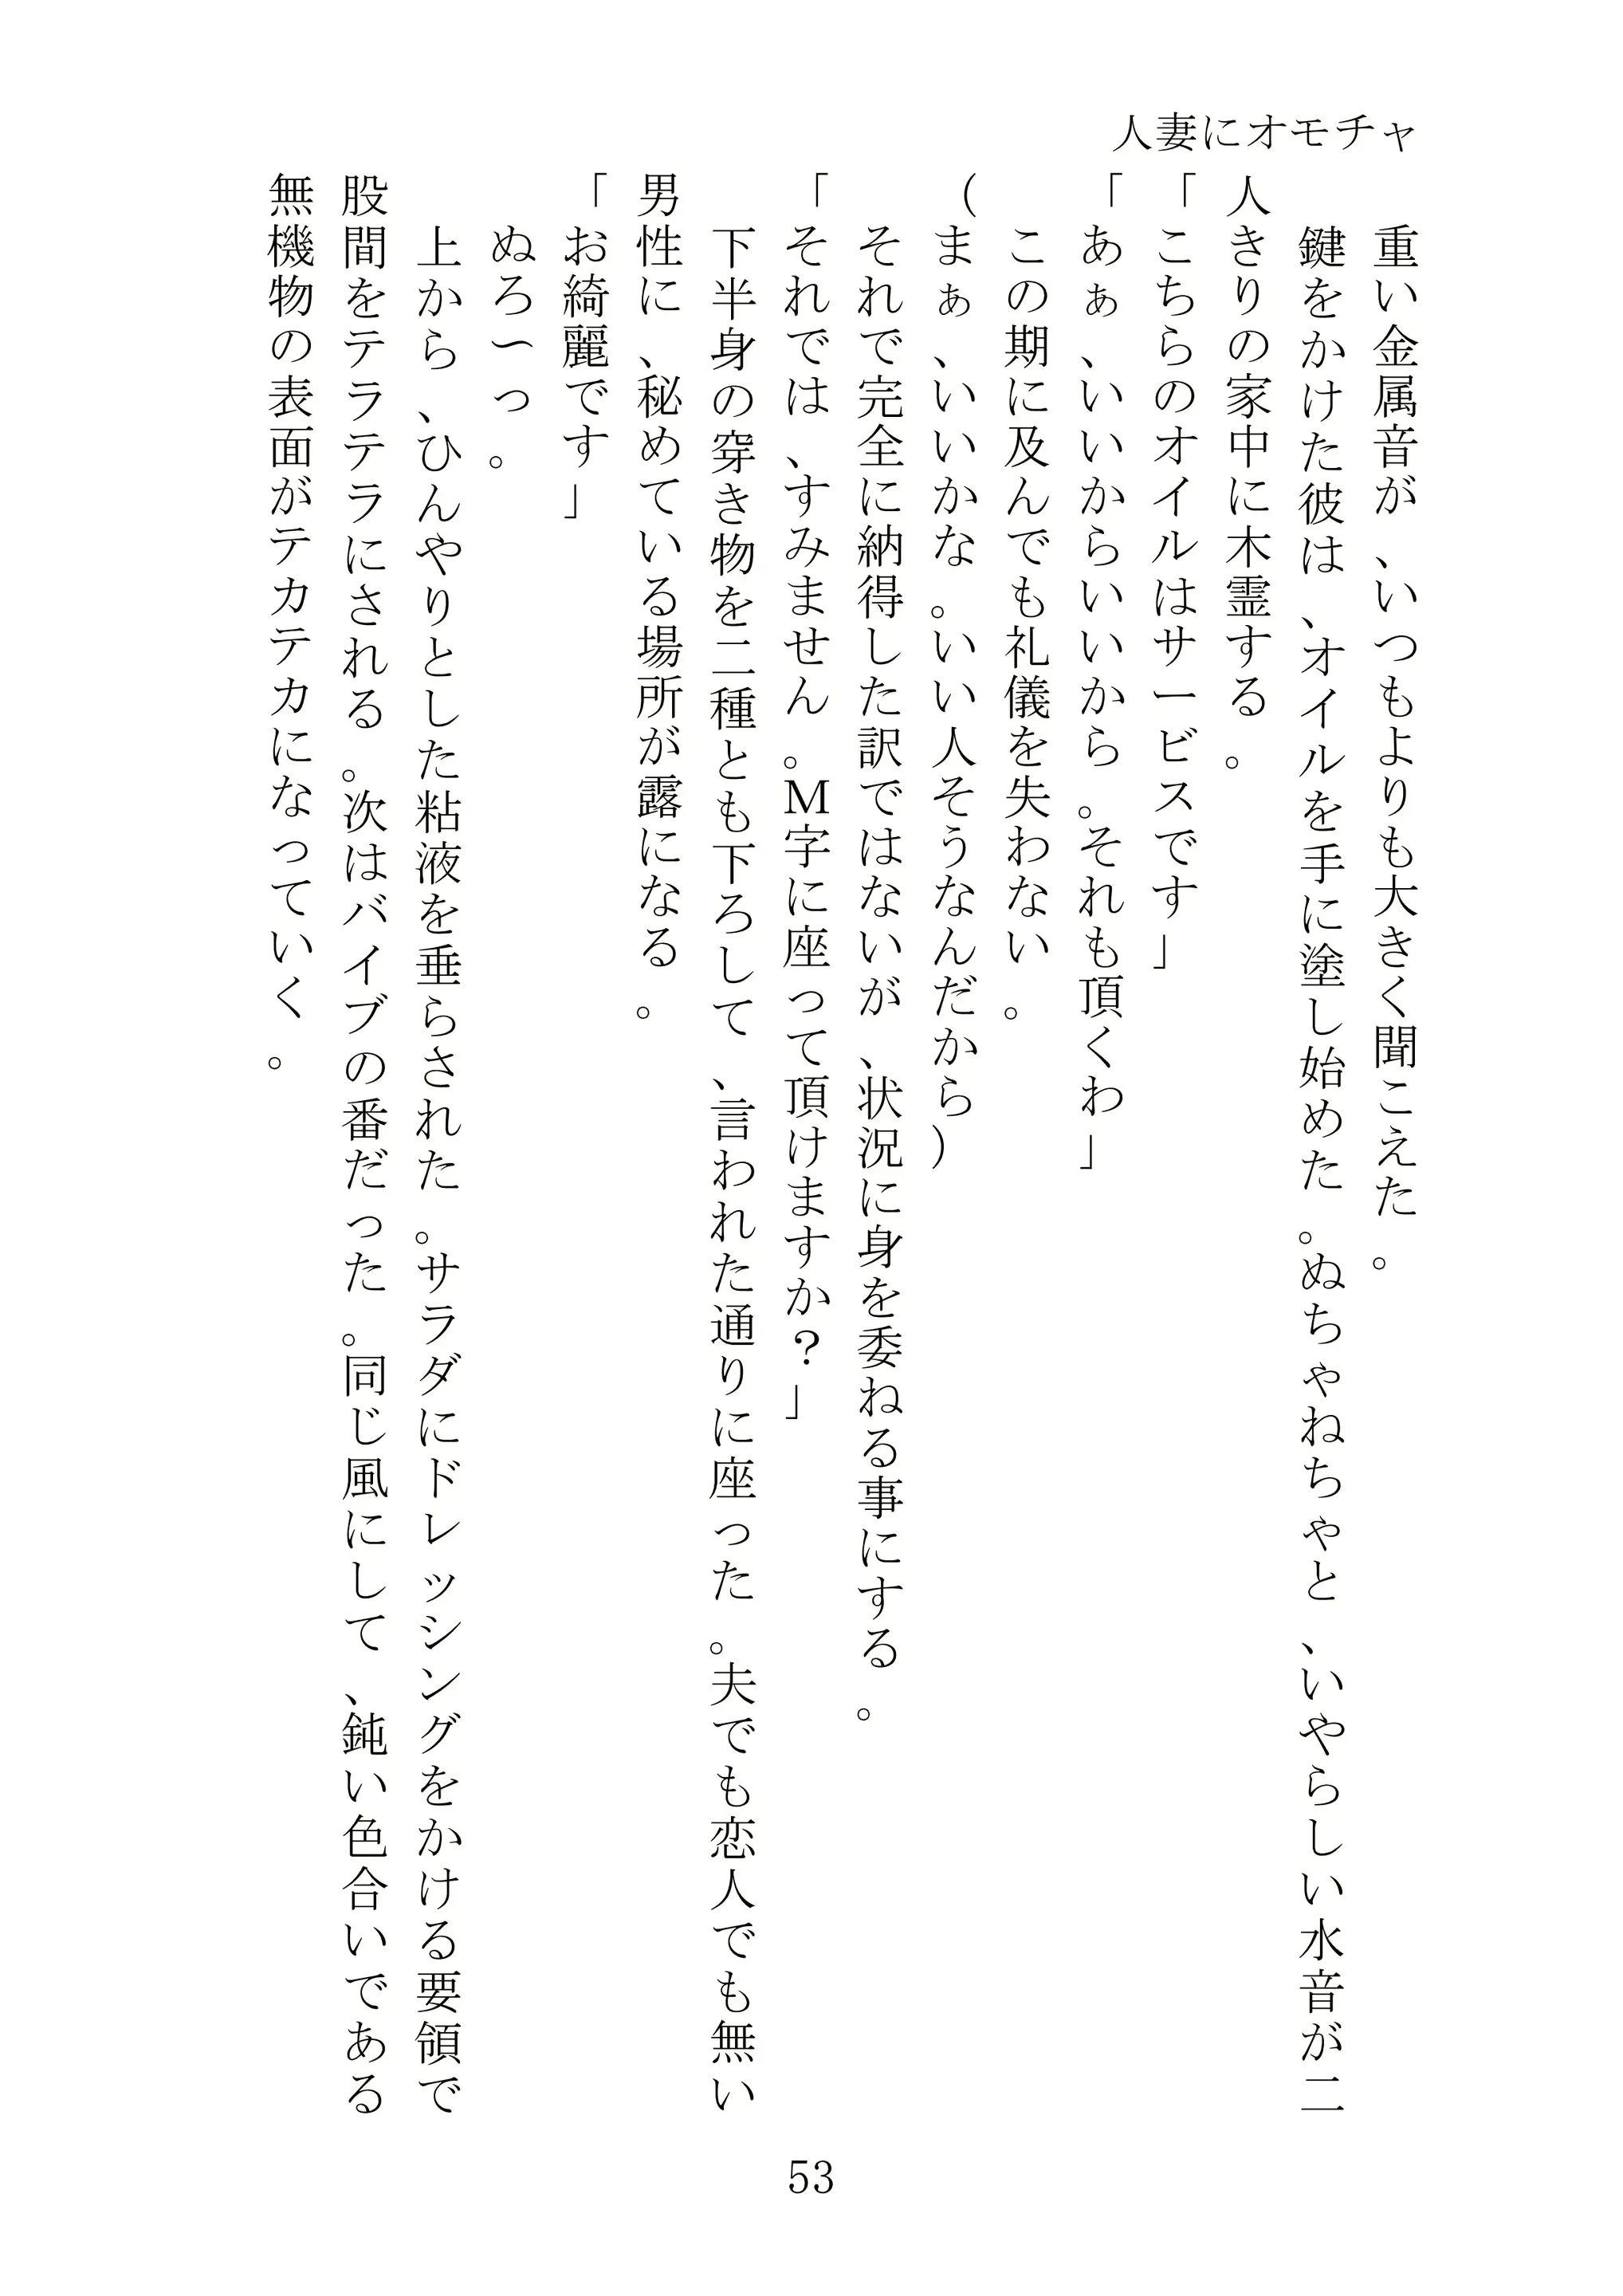 人妻にオモチャ
重い金属音が、いつもよりも大きく聞こえた。
鍵をかけた彼は、オイルを手に塗し始めた。ぬちゃねちゃと、いやらしい水音が二
人きりの家中に木霊する。
「こちらのオイルはサービスです」
「あぁ、いいからいいから。それも頂くわ」
この期に及んでも礼儀を失わない。
（まぁ、いいかな。いい人そうなんだから）
それで完全に納得した訳ではないが、状況に身を委ねる事にする。
「それでは、すみません。M字に座って頂けますか？」
下半身の穿き物を二種とも下ろして、言われた通りに座った。夫でも恋人でも無い
男性に、秘めている場所が露になる。
「お綺麗です」
ぬろ〜っ。
上から、ひんやりとした粘液を垂らされた。サラダにドレッシングをかける要領で
股間をテラテラにされる。次はバイブの番だった。同じ風にして、鈍い色合いである
無機物の表面がテカテカになっていく。
53